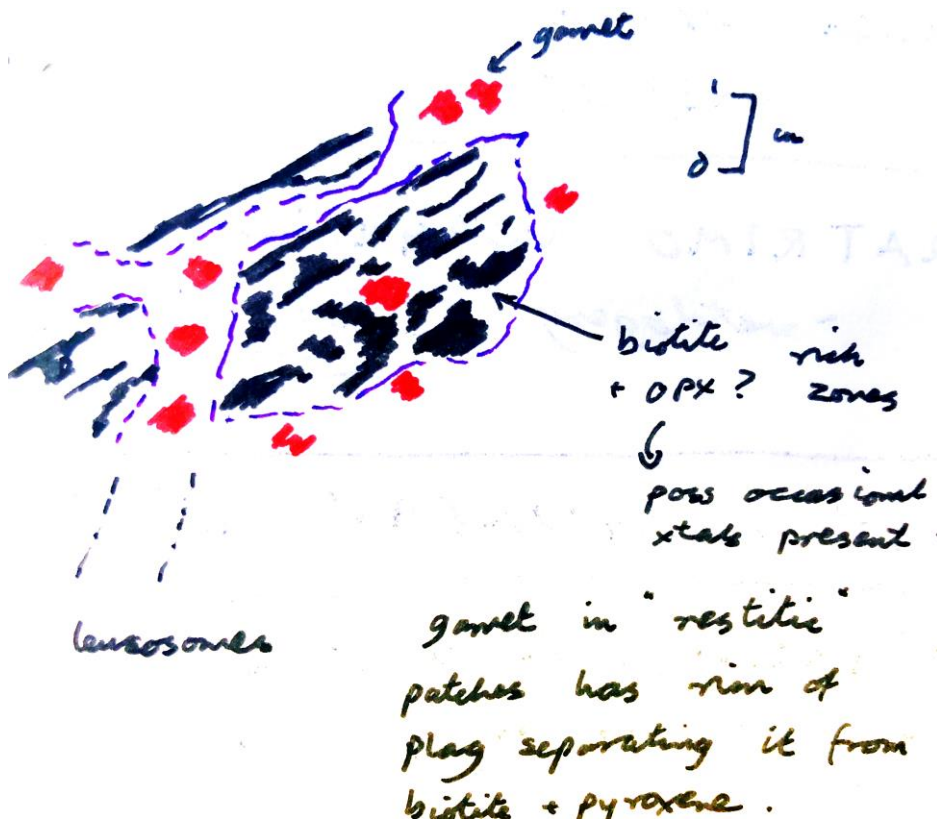 garnet
1
0
in
biotite rich
+ opx? zones
poss occasional
xtals present
leucosomes
garnet in "restitic"
patches has rim of
plag separating it from
biotite + pyroxene.